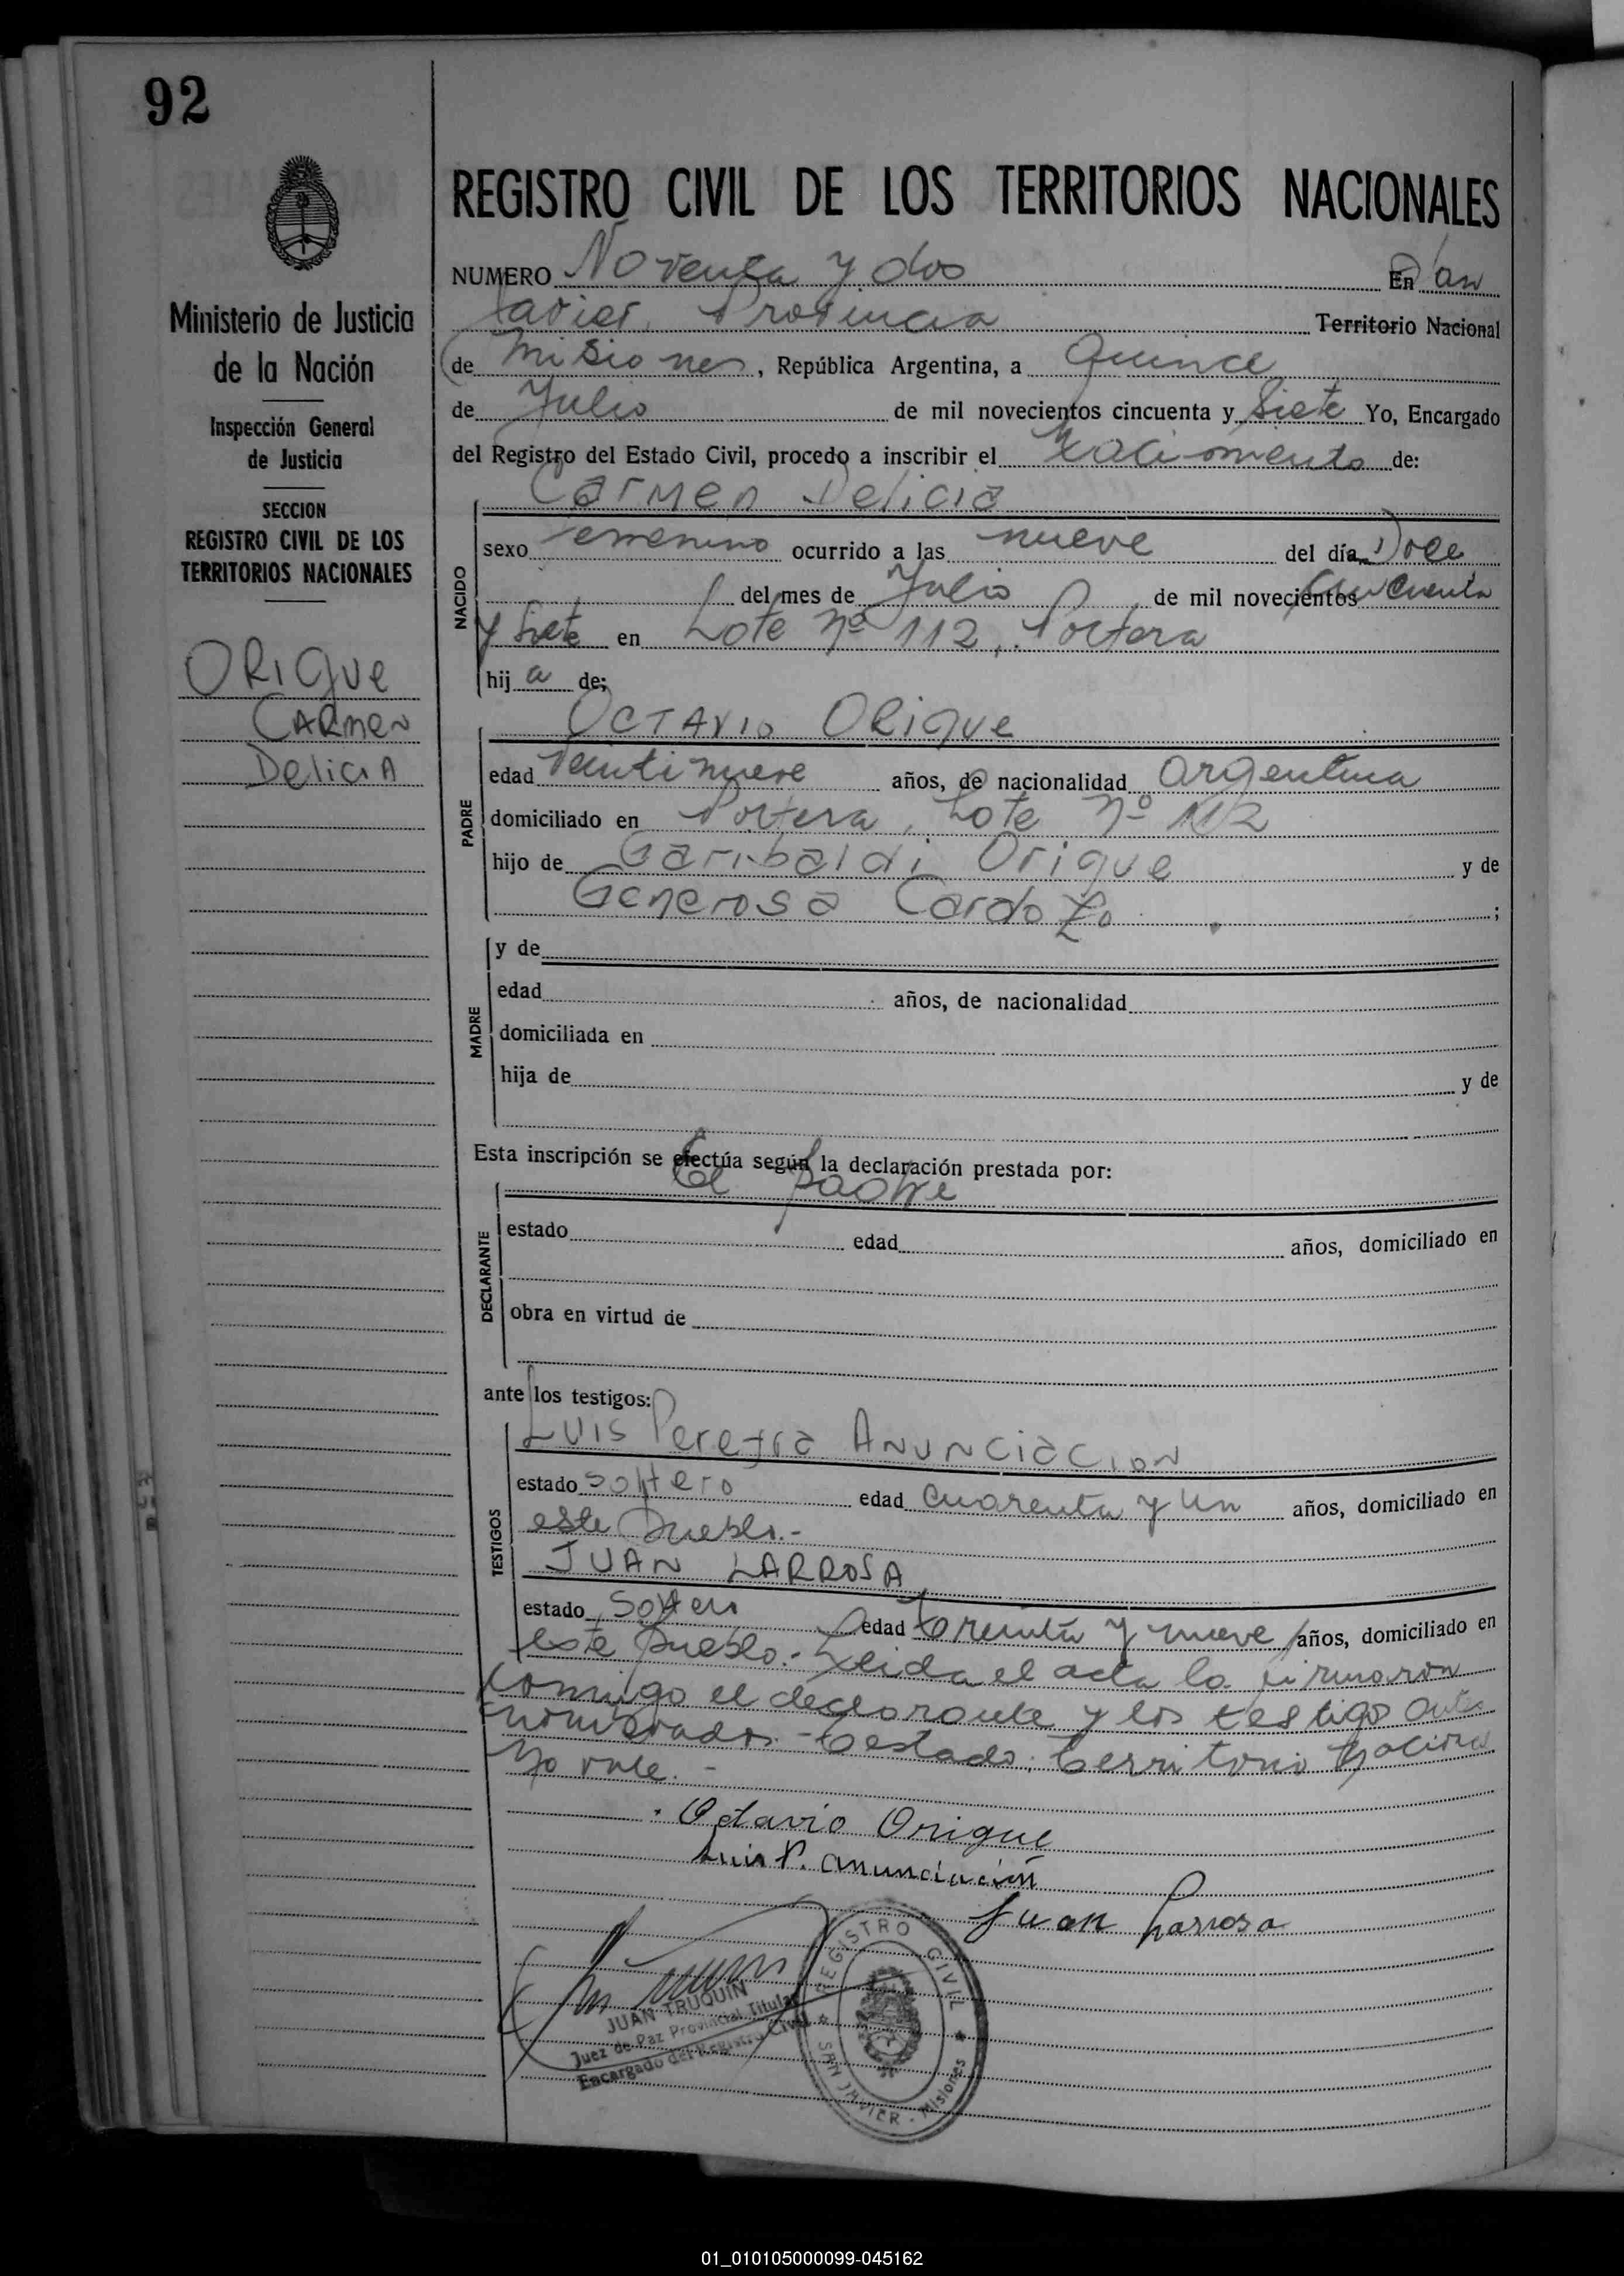 92
REGISTRO CIVIL DE LOS TERRITORIOS NACIONALES
Ministerio de Justicia
de la Nación
Inspección General
de Justicia
SECCION
REGISTRO CIVIL DE LOS
TERRITORIOS NACIONALES
ORIQUE
CARMEN
DeliciA
NUMERO Noventa y dos En San
Javier, Provincia Territorio Nacional
de Misiones, República Argentina, a Quince
de Julio de mil novecientos cincuenta y Siete Yo, Encargado
del Registro del Estado Civil, procedo a inscribir el Nacimiento de:
Carmen Delicia
NACIDO
sexo Femenino ocurrido a las nueve del día Doce
del mes de Julio de mil novecientos Cincuenta
y Siete en Lote Nº 112, Portera
hij a de;
OCTAVIO ORIQUE
PADRE
edad Veintinueve años, de nacionalidad Argentina
domiciliado en Portera, Lote Nº 112
hijo de Garibaldi Orique y de
Generosa Cardozo ;
MADRE
y de
edad años, de nacionalidad
domiciliada en
hija de y de
Esta inscripción se efectúa según la declaración prestada por:
El padre
DECLARANTE
estado edad años, domiciliado en
obra en virtud de
ante los testigos:
Luis Pereyra Anunciacion
TESTIGOS
estado soltero edad cuarenta y un años, domiciliado en
este pueblo.-
JUAN LARROSA
estado soltero edad treinta y nueve años, domiciliado en
este pueblo.- Leida el acta la firmaron
conmigo el declarante y los testigos ante
nombrados.- Testado: Territorio Nacional
No vale.-
Octavio Orique
Luis P. Anunciación
Juan Larrosa
JUAN TRUQUIN
Juez de Paz Provincial Titular
Encargado del Registro Civil
REGISTRO CIVIL
SAN JAVIER - Misiones
01_010105000099-045162